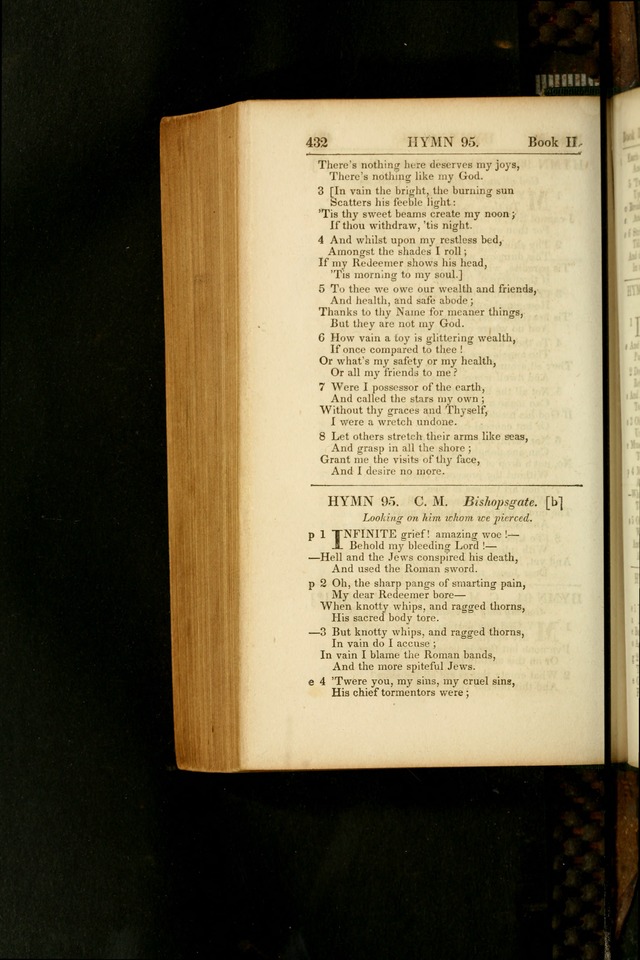 432 HYMN 95. Book II.
There's nothing here deserves my joys,
There's nothing like my God.
3 [In vain the bright, the burning sun
Scatters his feeble light:
'Tis thy sweet beams create my noon;
If thou withdraw, 'tis night.
4 And whilst upon my restless bed,
Amongst the shades I roll;
If my Redeemer shows his head,
'Tis morning to my soul.]
5 To thee we owe our wealth and friends,
And health, and safe abode;
Thanks to thy Name for meaner things,
But they are not my God.
6 How vain a toy is glittering wealth,
If once compared to thee!
Or what's my safety or my health,
Or all my friends to me?
7 Were I possessor of the earth,
And called the stars my own;
Without thy graces and Thyself,
I were a wretch undone.
8 Let others stretch their arms like seas,
And grasp in all the shore;
Grant me the visits of thy face,
And I desire no more.
HYMN 95. C. M. Bishopsgate. [b]
Looking on him whom we pierced.
p 1 INFINITE grief! amazing woe!—
Behold my bleeding Lord!—
—Hell and the Jews conspired his death,
And used the Roman sword.
p 2 Oh, the sharp pangs of smarting pain,
My dear Redeemer bore—
When knotty whips, and ragged thorns,
His sacred body tore.
—3 But knotty whips, and ragged thorns,
In vain do I accuse;
In vain I blame the Roman bands,
And the more spiteful Jews.
e 4 'Twere you, my sins, my cruel sins,
His chief tormentors were;